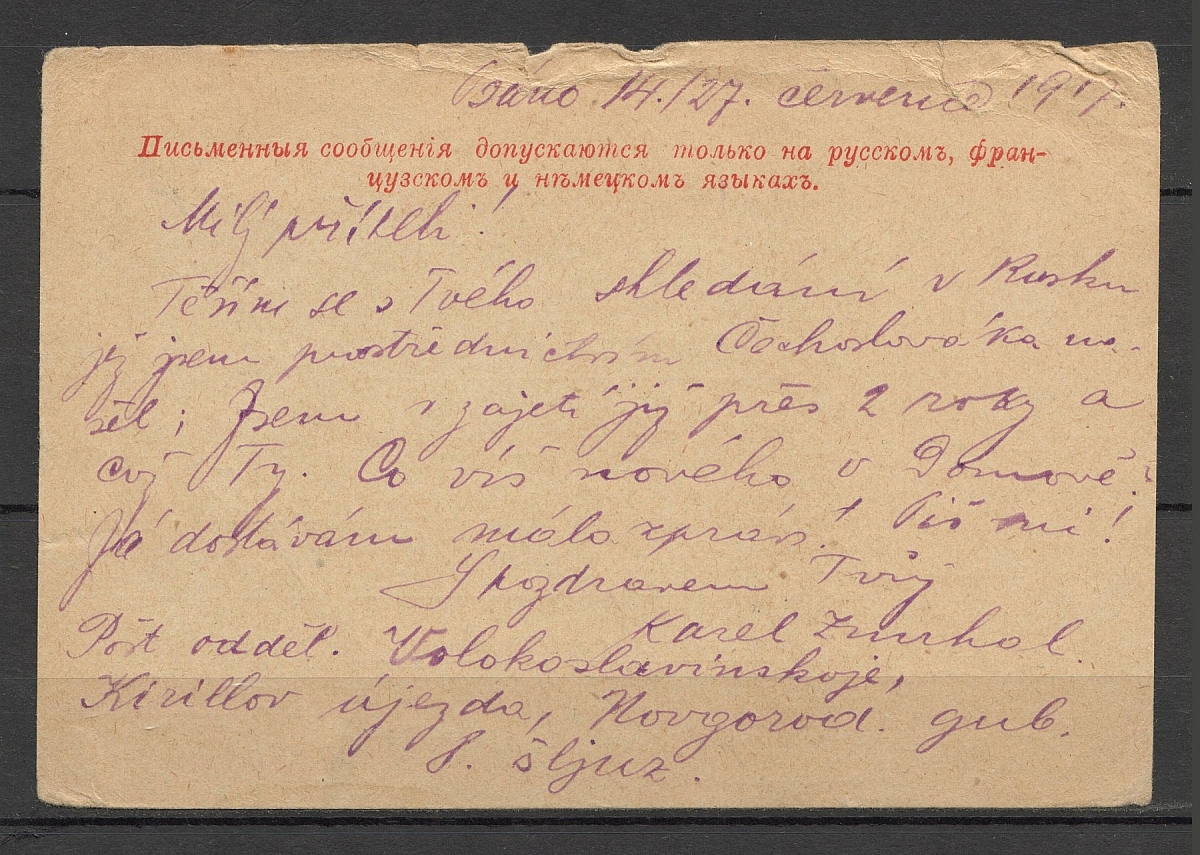 Psáno 14./27. července 1917.
Письменныя сообщенія допускаются только на русскомъ, фран-
цузскомъ и нѣмецкомъ языкахъ.
Milý příteli!
Těším se s Tvého shledání v Rusku
jej jsem prostřednictvím Čechoslováka na-
šel; Jsem v zajetí již přes 2 roky a
což Ty. Co víš nového v Domově?
Já dostávám málo zpráv! Piš mi!
S pozdravem Tvůj
Karel
Pošt odděl. Volokoslavinskoje,
Kirillov újezda, Novgorod. gub.
šljuz.